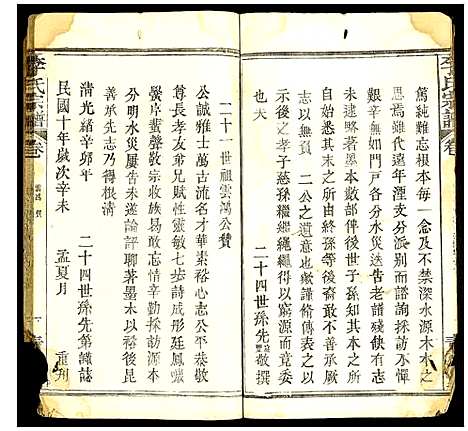 李氏宗譜 卷
篤純難忘根本每一念及不禁深水源木本之
思雖代遠年湮支分派別而譜詢採訪亦憚
艱辛無如門戸各分水災迭告老譜殘缺有志
未逮略著墨本数部俾後世子孫知其本末
自始悉其末之所由終其後勿敢不善承厥
志以無負 二公之遺意也欲謹脩傳表之以
示後之孝子慈孫繼繼繩繩得以窮源而竟委
也夫
二十四世孫先 敬撰
二十一世祖雲鴻公贊
公誠雅士萬古流名才華素裕心志公平恭敬
尊長孝友弟兄性靈敏七步詩成彤廷鳳噦
黌序蜚聲敦宗收族易敢忘情辛勤採訪源本
分明水災屢告未遂論評聊著墨本以裕後昆
善承先志乃得根清
清光緒辛卯年 二十四世孫先第識誌
民國十年歲次辛未 孟夏月 重刋
李氏宗譜 卷